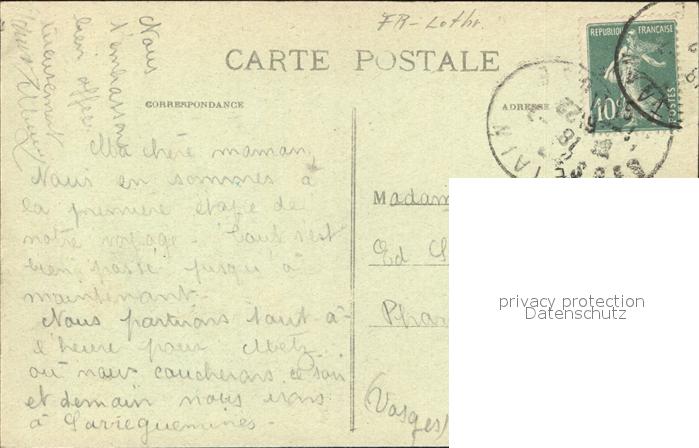 FR-Lothr.
CARTE POSTALE
CORRESPONDANCE
ADRESSE
REPUBLIQUE FRANÇAISE
10c
POSTES
Ma chère maman,
Nous en sommes à
la première étape de
notre voyage. Tout s'est
bien passé jusqu'à
maintenant.
Nous partirons tout à
l'heure pour Metz
où nous coucherons ce soir
et demain nous irons
à Sarreguemines.
Nous
t'embrassons
bien affec
tueusement
Madam
Ed
Phar
(Vosges)
privacy protection
Datenschutz